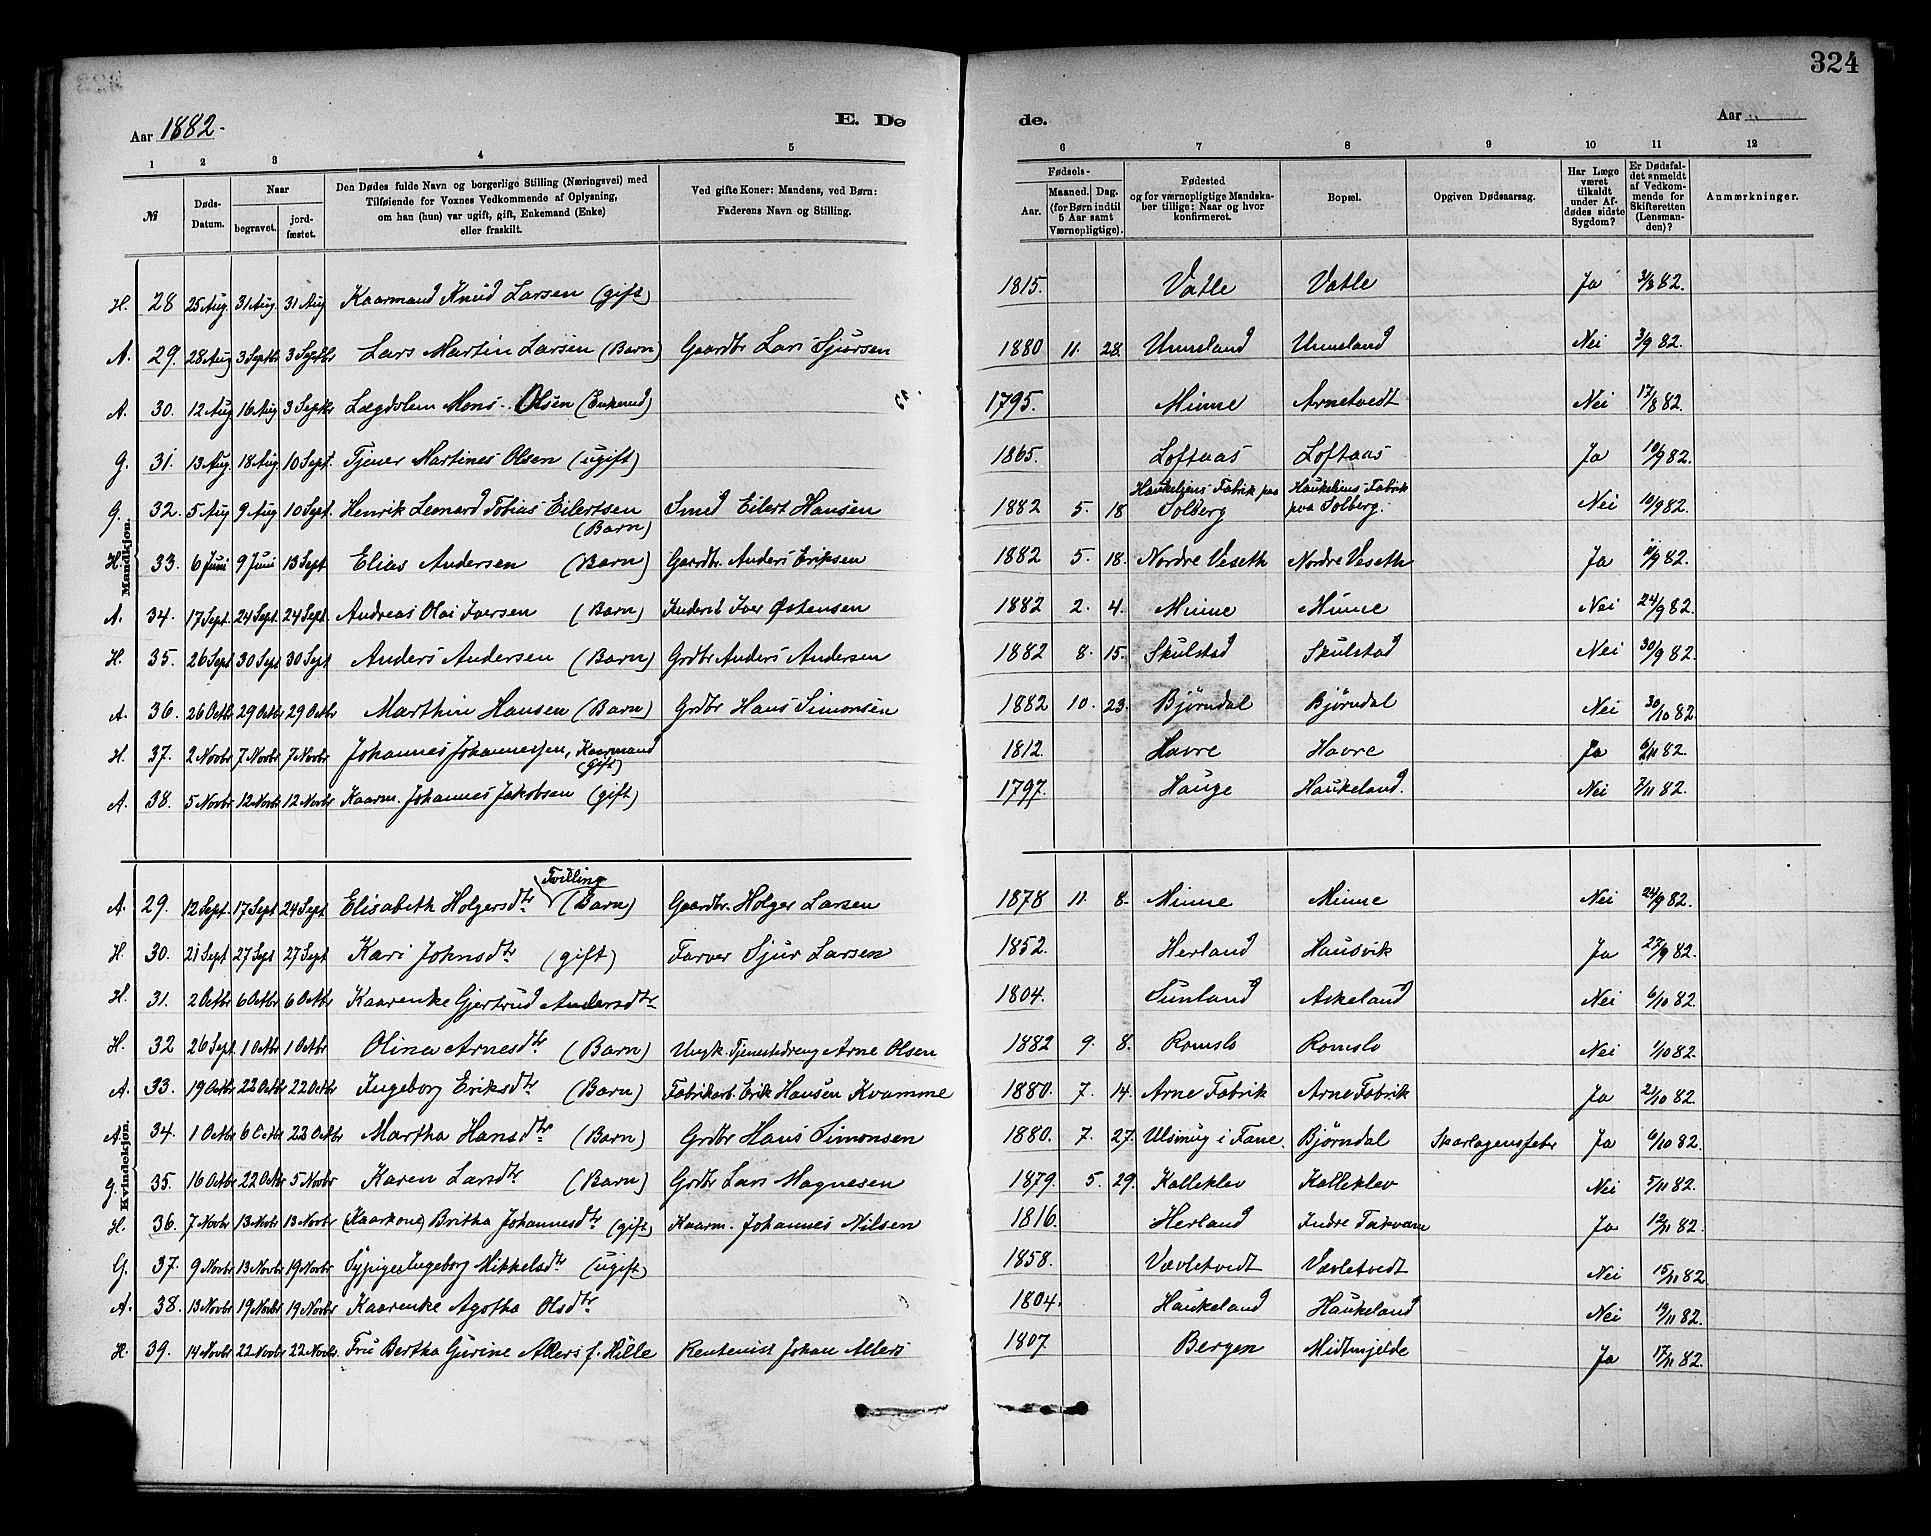 324
Aar 1882.
E. Dø
de.
Aar
1 2 3 4 5 6 7 8 9 10 11 12
№
Døds-Datum.
Naar
begravet.
jord-fæstet.
Den Dødes fulde Navn og borgerlige Stilling (Næringsvei) med
Tilføiende for Voxnes Vedkommende af Oplysning,
om han (hun) var ugift, gift, Enkemand (Enke)
eller fraskilt.
Ved gifte Koner: Mandens, ved Børn:
Faderens Navn og Stilling.
Fødsels-
Aar.
Maaned. Dag.
(for Børn indtil
5 Aar samt
Værnepligtige).
Fødested
og for værnepligtige Mandska-
ber tillige: Naar og hvor
konfirmeret.
Bopæl.
Opgiven Dødsaarsag.
Har Læge
været
tilkaldt
under Af-
dødes sidste
Sygdom?
Er Dødsfal-
det anmeldt
af Vedkom-
mende for
Skifteretten
(Lensman-
den)?
Anmærkninger.
Mandkjøn.
H. 28 25 Aug. 31 Aug. 31 Aug Kaarmand Knud Larsen (gift) 1815. Vatle Vatle Ja 31/8 82.
A. 29. 28 Aug 3 Septbr 3 Septbr Lars Martin Larsen (Barn) Gaardbr Lars Sjursen 1880 11. 28. Unneland Unneland Nei 3/9 82.
A. 30. 12 Aug 16 Aug 3 Septbr Lægdslem Mons Olsen (Enkemd) 1795. Minne Arnetvedt Nei 17/8 82.
G. 31. 13 Aug 18 Aug 10 Sept. Tjener Martines Olsen (ugift) 1865. Loftaas Loftaas Ja 10/9 82.
G. 32. 5 Aug 9 Aug 10 Sept. Henrik Leonard Tobias Eilertsen (Barn) Smed Eilert Hansen 1882 5. 18 Haukeljens Fabrik paa Solberg Haukeljens Fabrik paa Solberg. Nei 10/9 82.
H. 33. 6 Juni 9 Juni 13 Sept Elias Andersen (Barn) Gaardbr. Anders Eriksen 1882 5. 18. Nordre Veseth Nordre Veseth Ja 82.
A. 34. 17 Sept. 24 Sept. 24 Sept. Andreas Olai Iversen (Barn) Inderst Iver Østensen 1882 2. 4. Minne Minne Nei 24/9 82.
H. 35. 26 Sept 30 Sept 30 Sept Anders Andersen (Barn) Grdbr Anders Andersen 1882 8. 15. Skulstad Skulstad Nei 30/9 82.
A. 36. 26 Octbr 29 Octbr 29 Octbr Marthin Hansen (Barn) Grdbr Hans Simonsen 1882 10. 23. Bjørndal Bjørndal Nei 30/10 82.
H. 37. 2 Novbr 7 Novbr 7 Novbr Johannes Johannessen, Kaarmand (gift) 1812. Havre Havre Ja 6/11 82.
A. 38. 5 Novbr 12 Novbr 12 Novbr Kaarm. Johannes Jakobsen (gift) 1797. Hauge Haukeland. Nei 7/11 82.
Kvindekjøn.
A. 29. 12 Sept. 17 Sept 24 Sept Elisabeth Holgersdtr Tvilling (Barn) Gaardbr. Holger Larsen 1878 11. 8. Minne Minne Nei 24/9 82.
H. 30. 21 Sept 27 Sept 27 Sept Kari Johnsdtr (gift) Farver Sjur Larsen 1852. Herland Hausvik Ja 27/9 82.
H. 31. 2 Octbr 6 Octbr 6 Octbr Kaarenke Gjertrud Andersdtr 1804. Sunland Askeland Nei 6/10 82.
H. 32 26 Sept. 1 Octbr 1 Octbr Olina Arnesdtr (Barn) Ungk. Tjenestedreng Arne Olsen 1882 9. 8. Romslo Romslo Nei 1/10 82.
A. 33. 19 Octbr 22 Octbr 22 Octbr Ingeborg Eriksdtr (Barn) Fabrikarb. Erik Hansen Kvamme 1880. 7. 14. Arne Fabrik Arne Fabrik Ja 21/10 82.
A. 34. 1 Octbr 6 Octbr 22 Octbr Martha Hansdtr (Barn) Grdbr Hans Simonsen 1880. 7. 27. Ulsmug i Fane. Bjørndal Skarlagensfeber Ja 6/10 82.
G. 35. 16 Octbr 22 Octbr 5 Novbr Karen Larsdtr (Barn) Grdbr Lars Magnesen 1879. 5. 29. Kalleklev Kalleklev Nei 5/11 82.
H. 36. 7 Novbr 13 Novbr 13 Novbr (Kaarkone) Britha Johannesdtr (gift) Kaarm. Johannes Nilsen 1816. Herland Indre Takvam Ja 12/11 82.
G. 37. 9 Novbr 13 Novbr 19 Novbr Sypige Ingeborg Mikkelsdtr (ugift) 1858. Vævletvedt Vævletvedt Nei 15/11 82.
A. 38. 13 Novbr 19 Novbr 19 Novbr Kaarenke Agatha Olsdtr 1804. Haukeland Haukeland Nei 19/11 82.
H. 39. 14 Novbr 22 Novbr 22 Novbr. Fru Bertha Gurine Allers f. Hille Rentenist Johan Allers 1807. Bergen Midtmjelde Ja 17/11 82.